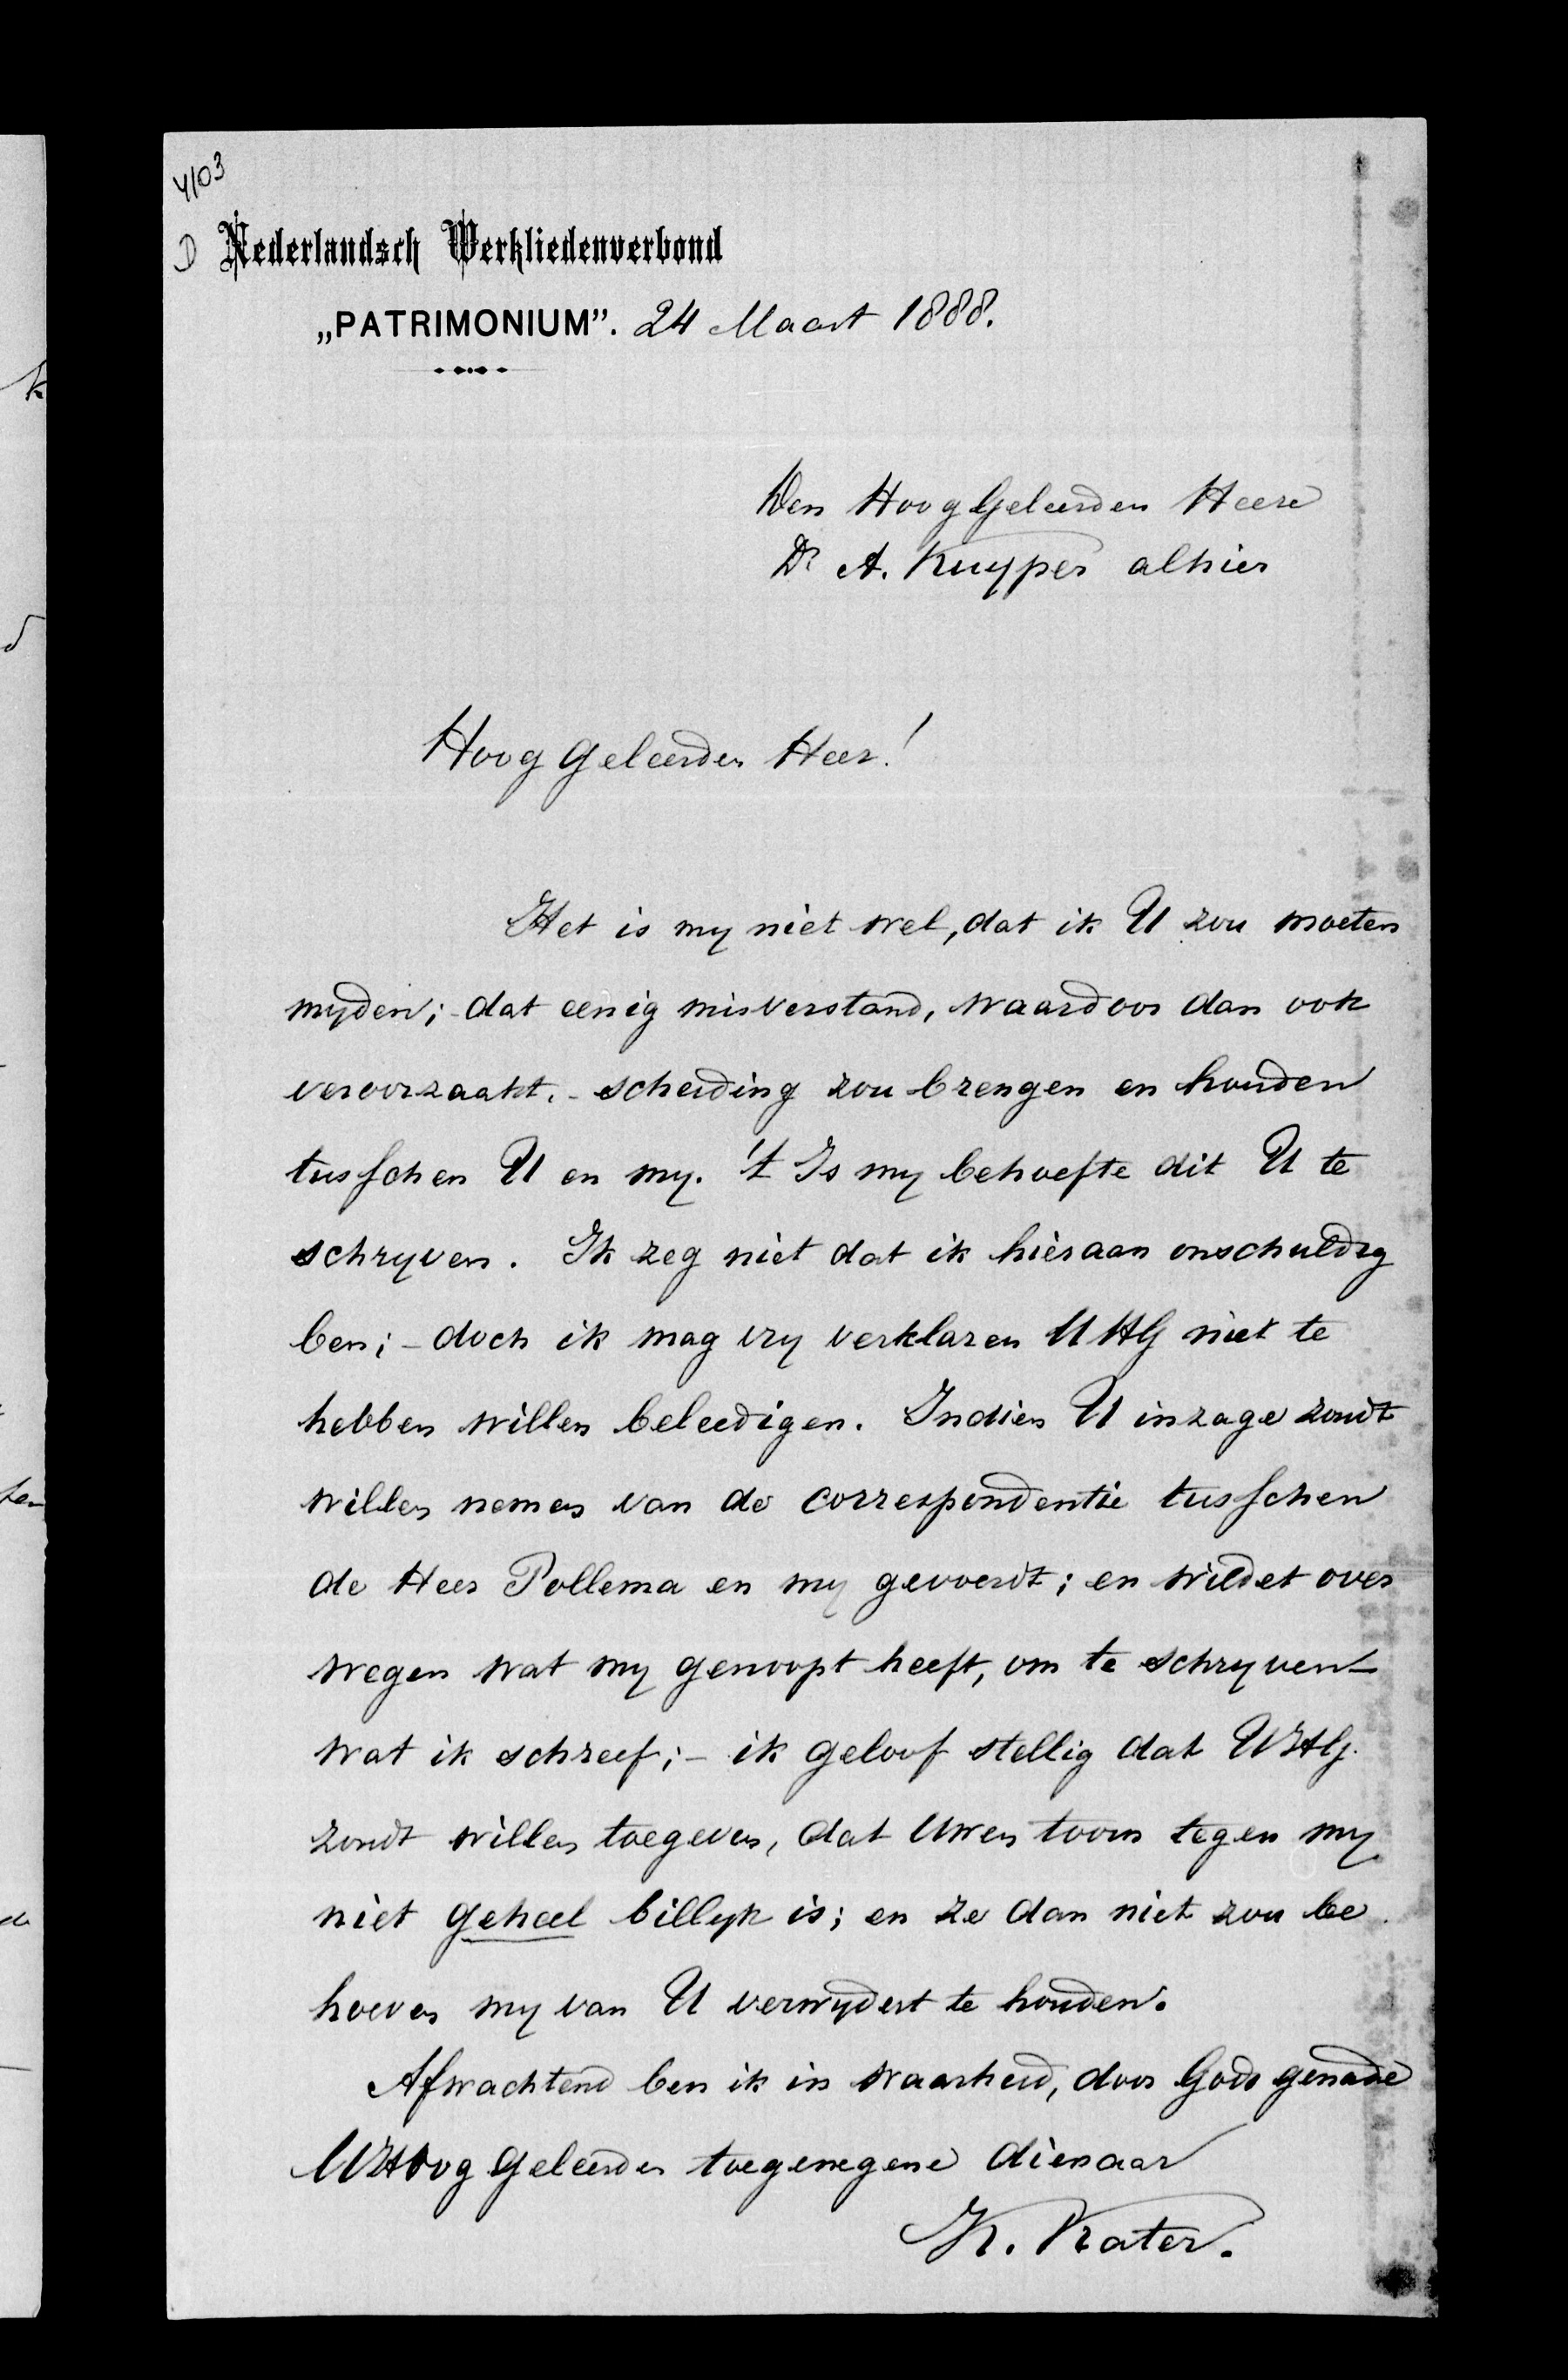 4103
Nederlandsch Werkliedenverbond
„PATRIMONIUM”. 24 Maart 1888.
Den HoogGeleerden Heere
Dr A. Kuyper alhier
HoogGeleerden Heer!
Het is my niet wel, dat ik U zou moeten
myden; - dat eenig misverstand, waardoor dan ook
veroorzaakt, - scheiding zou brengen en houden
tusschen U en my. 't Is my behoefte dit U te
schryven. Ik zeg niet dat ik hieraan onschuldig
ben; - doch ik mag vry verklaren UHG niet te
hebben willen beleedigen. Indien U inzage zoudt
willen nemen van de correspondentie tusschen
de Heer Pollema en my gevoerdt; en wildet over
wegen wat my genoopt heeft, om te schryven -
wat ik schreef; - ik geloof stellig dat UZHG.
zoudt willen toegeven, dat Uwen toorn tegen my
niet geheel billyk is; en ze dan niet zou be
hoeven my van U verwydert te houden.
Afwachtend ben ik in waarheid, door Gods genade
UZHoogGeleerden toegenegene dienaar
K. Kater.